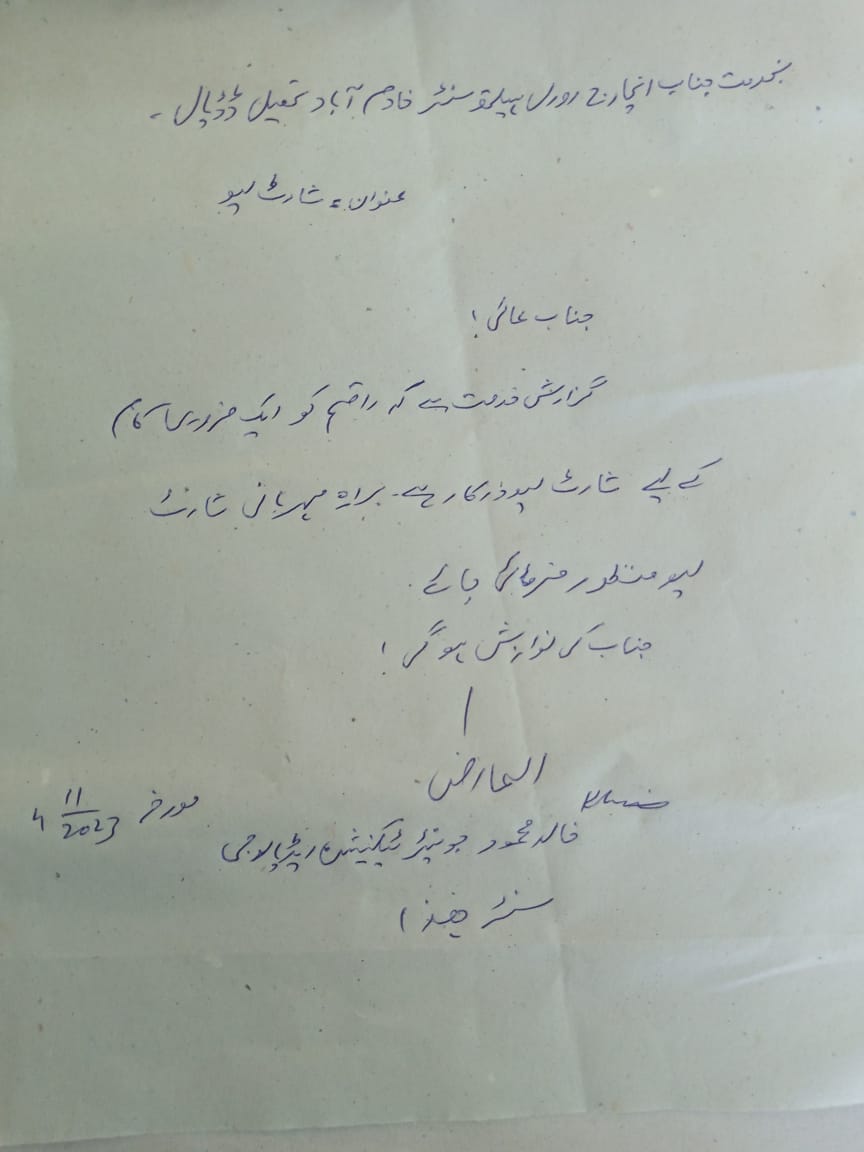 بخدمت جناب انچارج رورل ہیلتھ سنٹر خادم آباد تحصیل ڈڈیال ۔
عنوان = شارٹ لیو
جناب عالی !
گزارش خدمت ہے کہ راقم کو ایک ضروری کام
کے لیے شارٹ لیو درکار ہے۔ براہ مہربانی شارٹ
لیو منظور فرمائی جائے ۔
جناب کی نوازش ہو گی !
العارض
خالد محمود جونیئر ٹیکنیشن ریڈیالوجی
مورخہ 4 11/2023
سنٹر ھذا